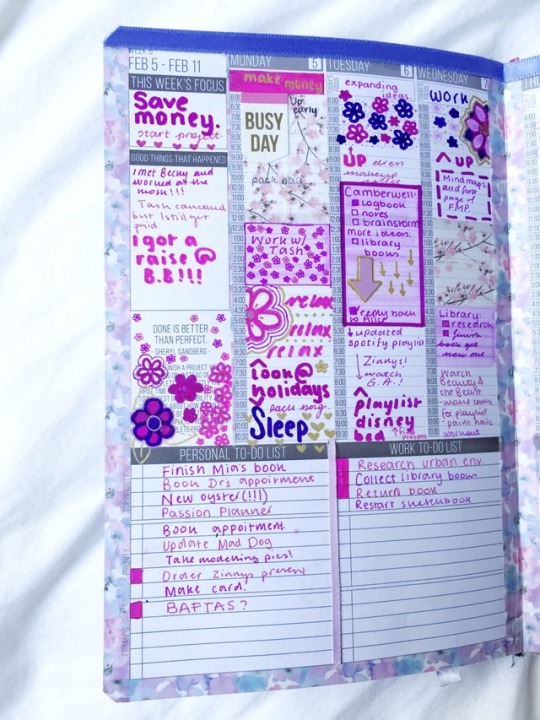 FEB 5 - FEB 11
THIS WEEK'S FOCUS
Save
money.
start project.
GOOD THINGS THAT HAPPENED
I met Becky and
worked at the
Task canceled
but I still got
paid
I got a
raise @
B.B!!!
DONE IS BETTER
THAN PERFECT.
- SHERYL SANDBERG -
MONDAY 5
make money
Up
early
BUSY
DAY
pack bag
Work w/
Tash
relax
relax
relax
look @
holidays
pack bag.
Sleep
TUESDAY 6
expanding
ideas.
UP
makeup
Camberwell:
logbook
notes
brainstorm
more ideas
library
books
updated
spotify playlist
Zinnys!
watch
G.A.!
playlist
disney
WEDNESDAY 7
work
UP
Mindmaps
and first
page of
FMP.
Library:
research
finish
book get
new one
Watch
Beauty &
the Beast
make card
for playlist
paint nails
PERSONAL TO-DO LIST
Finish Mia's book
Book Dr's appointment
New oyster(!!!)
Passion Planner
Book appointment
Update Mad Dog
Take modelling pics!
Order Zinnys present
Make card.
BAFTAS?
WORK TO-DO LIST
Research urban env.
Collect library books
Return book
Restart sketchbook